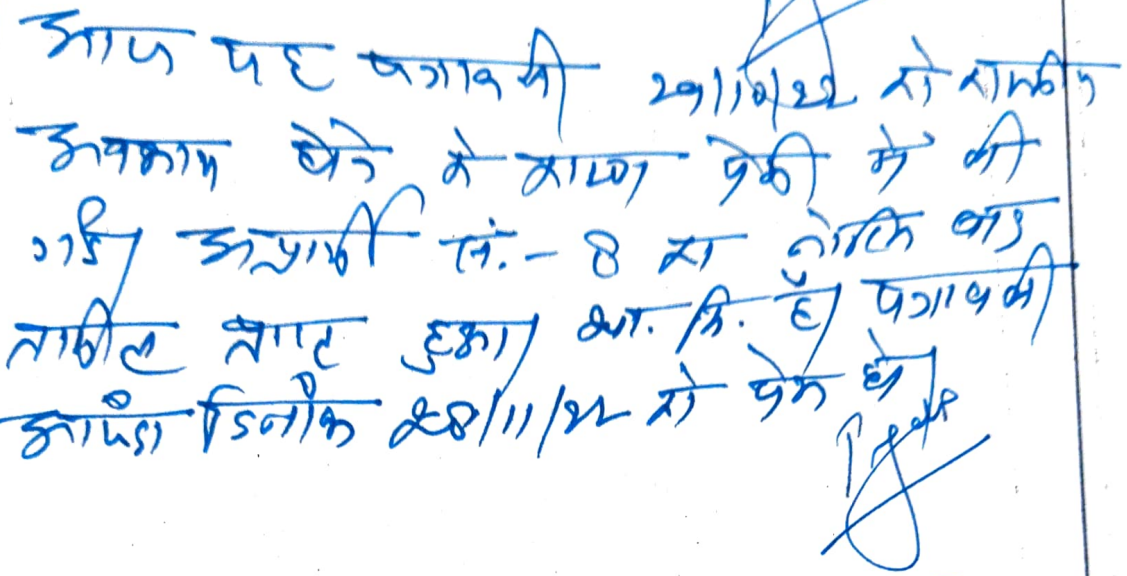 आज यह पत्रावली 29/10/22 को राजकीय
अवकाश होने के कारण पेशी में ली
गई। अप्रार्थी सं.- 8 का नोटिस बाद
तामील प्राप्त हुआ। शा. मि. हो। पत्रावली
आईंदा दिनाँक 28/11/22 को पेश हो।